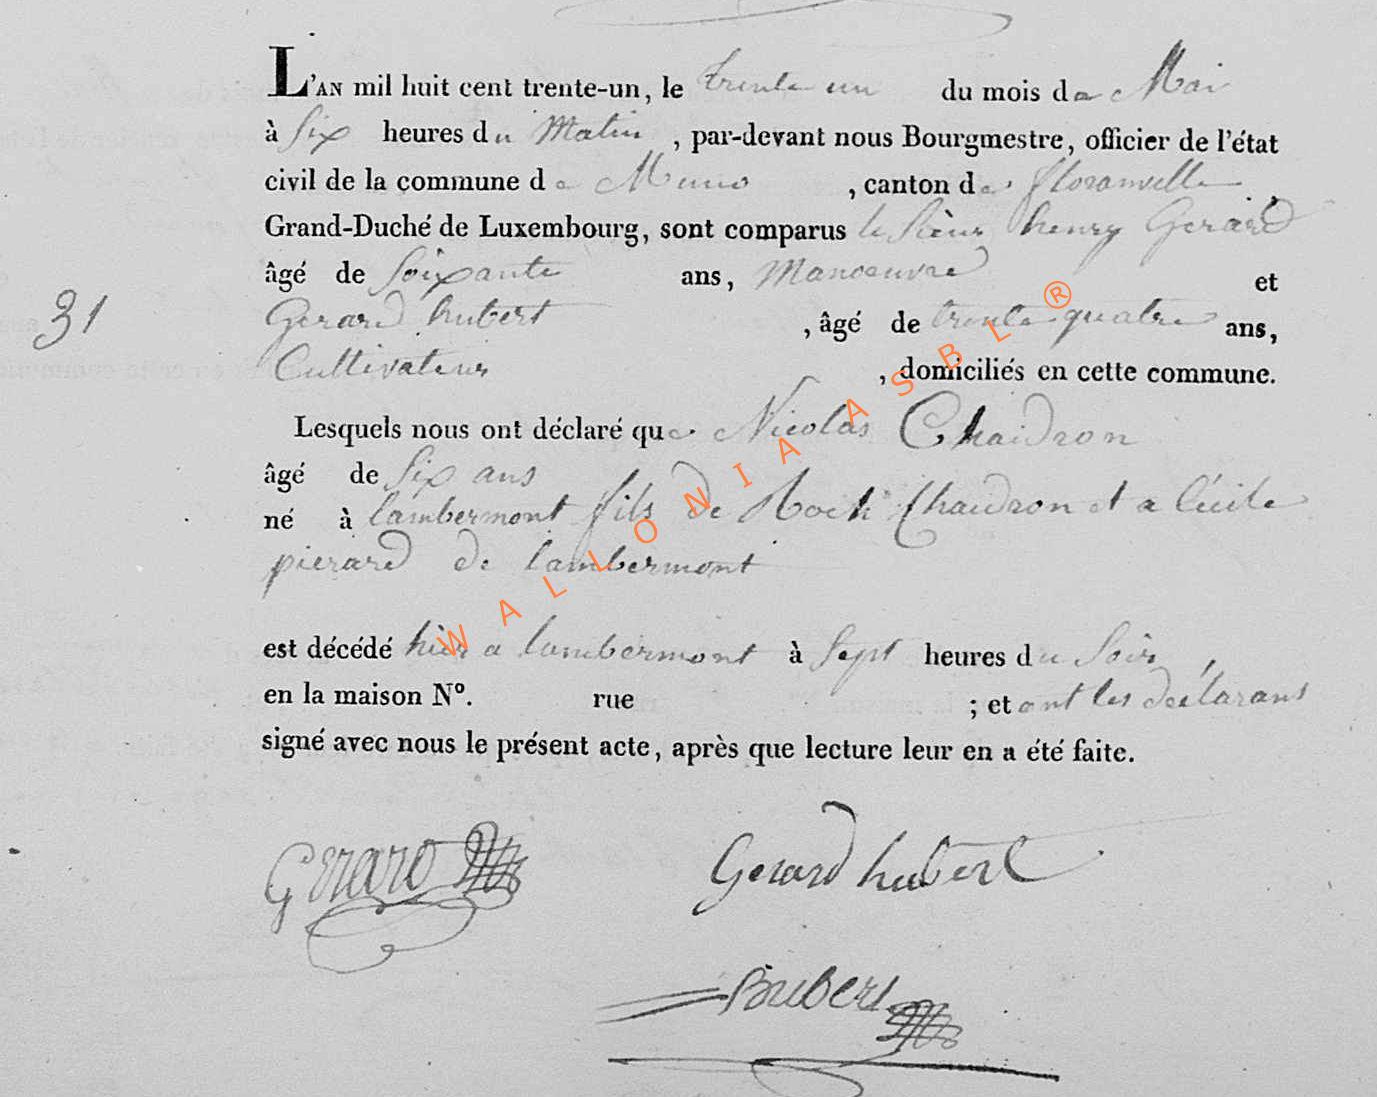 L'AN mil huit cent trente-un, le trente un du mois de Mai
à six heures du Matin, par-devant nous Bourgmestre, officier de l'état
civil de la commune de Muno, canton de floranville,
Grand-Duché de Luxembourg, sont comparus le sieur henry Gerard
âgé de Soixante ans, Manoeuvre et
31
Gerard hubert, âgé de trente quatre ans,
Cultivateur, domiciliés en cette commune.
Lesquels nous ont déclaré que Nicolas Chaidron
âgé de Six ans
né à lambermont fils de Roch Chaidron et a Cécile
pierard de lambermont
est décédé hier a lambermont à Sept heures du Soir,
en la maison N°. rue ; et ont les declarans
signé avec nous le présent acte, après que lecture leur en a été faite.
GERARD Gerard hubert
WALLONIA ASBL ®